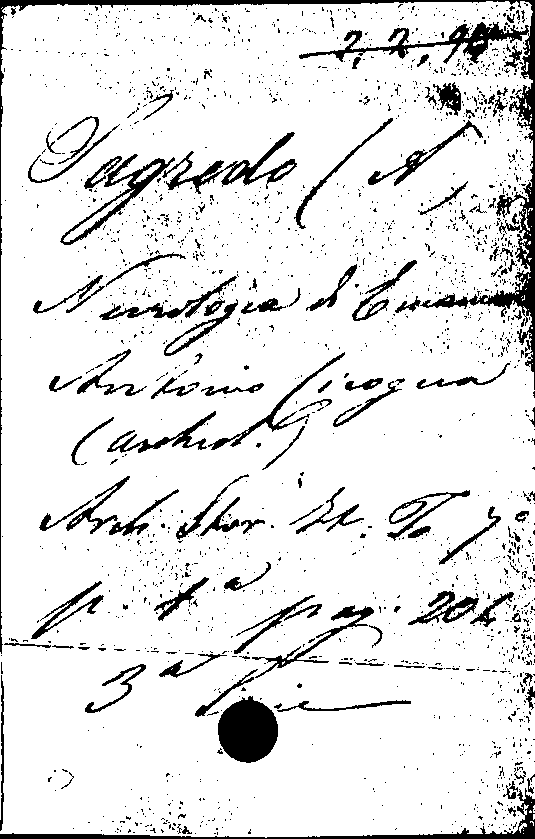 2, 2, 90
Sagredo (A,
Necrologia di Emanuele
Antonio Cicogna
(archeol.)
Arch. Stor. It. To 7º
p. 1ª pag. 202
3ª Serie